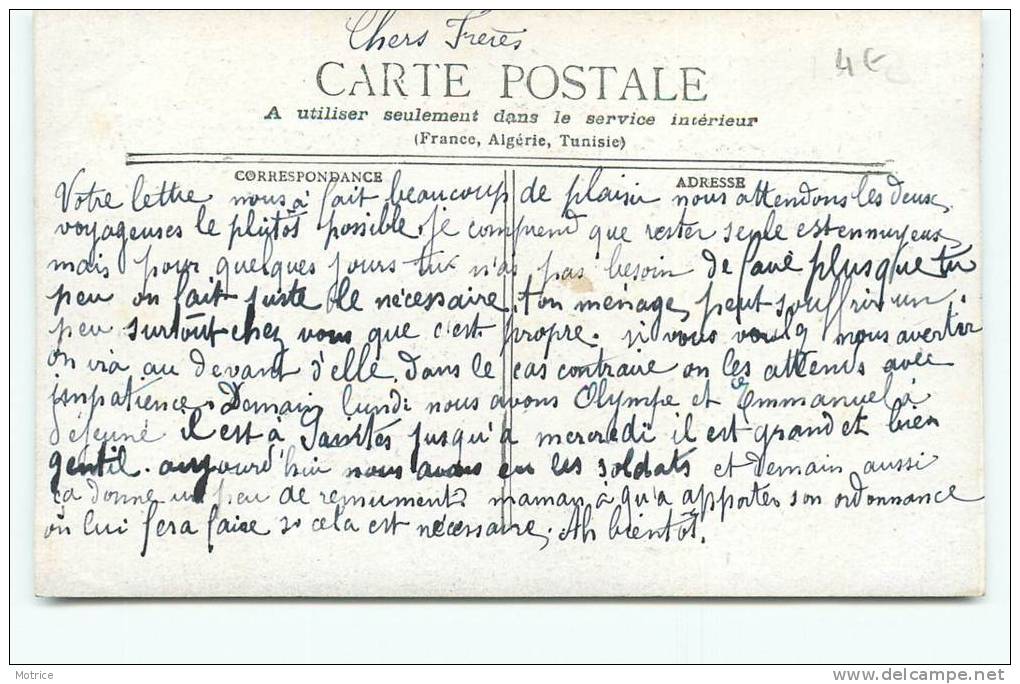 Chers Frères
4€
CARTE POSTALE
A utiliser seulement dans le service intérieur
(France, Algérie, Tunisie)
CORRESPONDANCE
ADRESSE
Votre lettre nous à fait beaucoup de plaisir nous attendons les deux
voyageuses le plutôt possible, je comprend que rester seule est ennuyeux
mais pour quelques jours tu n'as pas besoin de lavé plus que tu
peu on fait juste le nécessaire, ton ménage peut souffrir un
peu surtout chez vous que c'est propre. si vous voulez nous avertir
on ira au devant d'elle. Dans le cas contraire on les attends avec
impatience. Demain lundi nous avons Olympe et Emmanuel à
déjeuné il est à Saintes jusqu'à mercredi il est grand et bien
gentil. aujourd'hui nous avons eu les soldats et demain aussi
ça donne un peu de remument maman à qu'a apporter son ordonnance
on lui fera faire si cela est nécessaire. Ah bientôt.
Motrice
www.delcampe.net